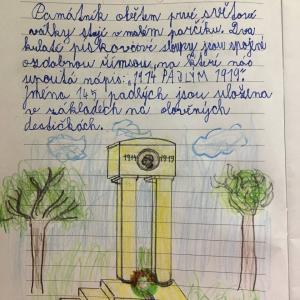 Památník obětem prvé světové
války stojí v malém parčíku. Dva
kulaté pískovcové sloupy jsou spojené
ozdobnou římsou, na které nás
upoutá nápis: „1914 PADLÝM 1919".
Jména 145 padlých jsou uložena
v základech na olověných
destičkách.
1914 1919